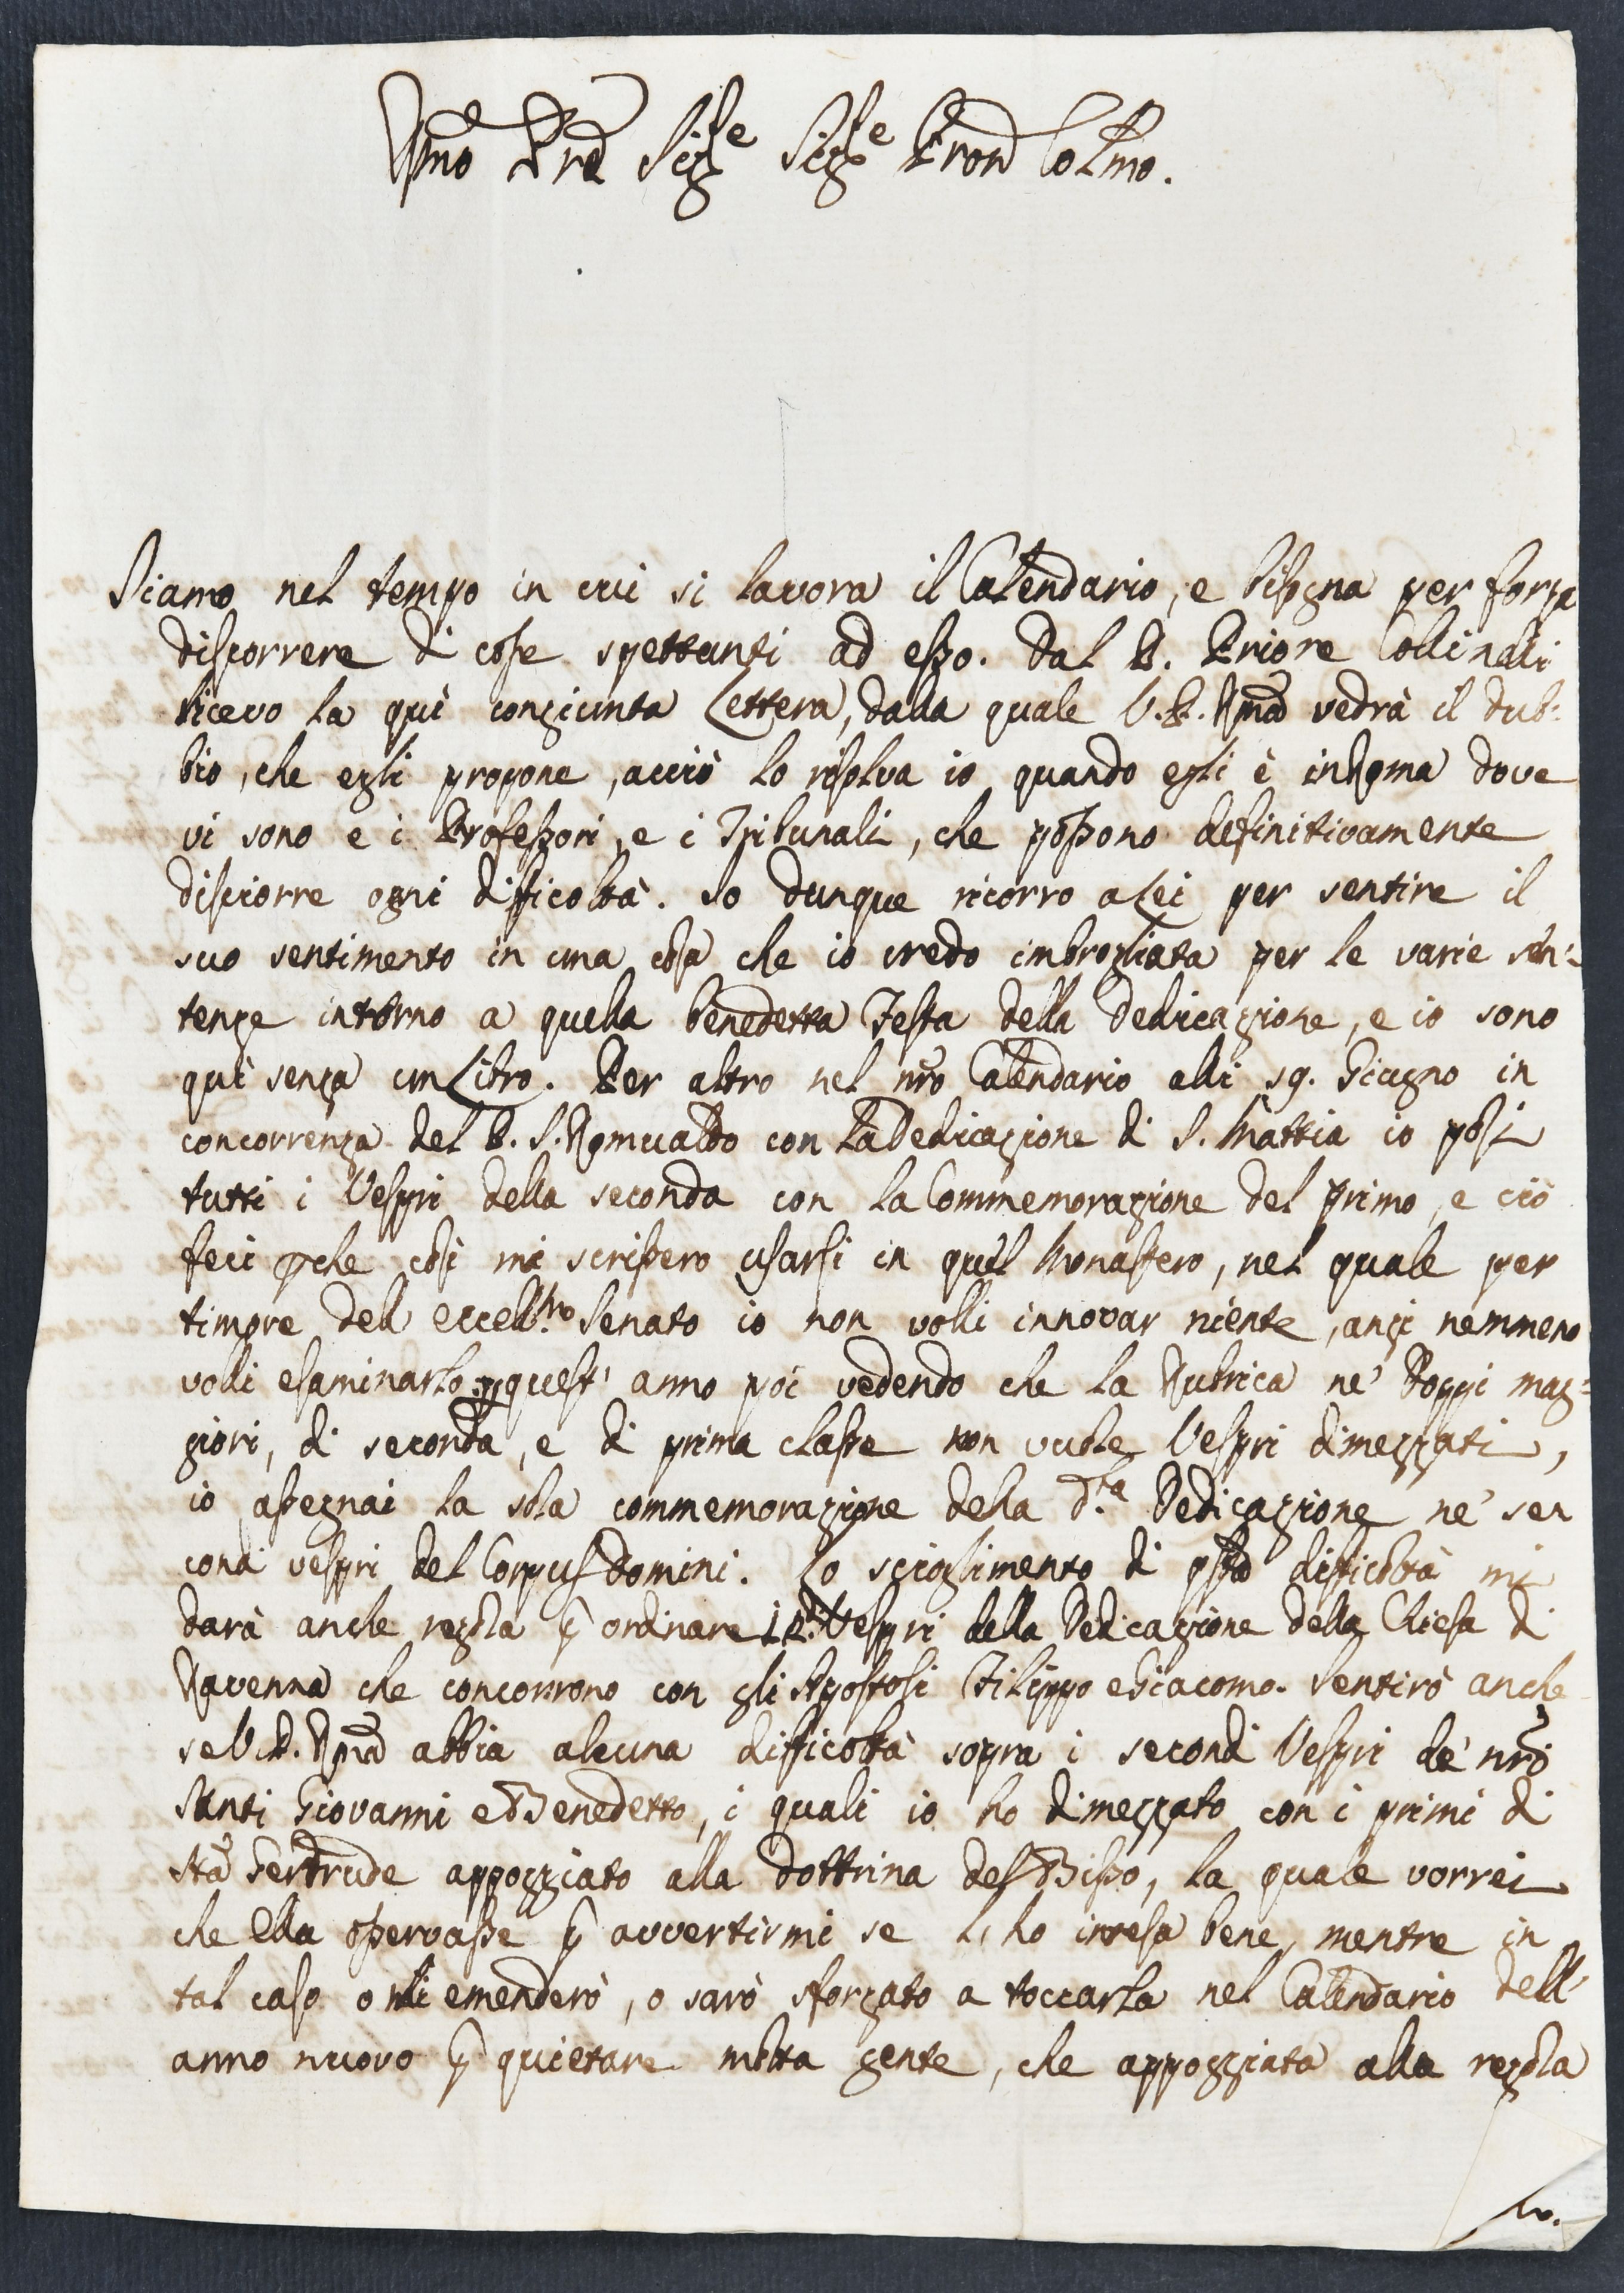 Rmo Pre Sigre Sigre Pron Colmo.
Siamo nel tempo in cui si lavora il Calendario, e bisogna per forza
discorrere di cose spettanti ad esso. Dal P. Priore Collinelli
ricevo la quì congiunta Lettera, dalla quale V.P. Rma vedrà il dub:
bio, che egli propone, acciò lo risolva io quando egli è in Roma dove
vi sono e i Professori, e i Tribunali, che possono definitivamente
disciorre ogni difficoltà. Io dunque ricorro a Lei per sentire il
suo sentimento in una cosa che io credo imbrogliata per le varie sen:
tenze intorno a quella benedetta Festa della Dedicazione, e io sono
quì senza un Libro. Per altro nel nro Calendario alli 19. Giugno in
concorrenza del P. S. Romualdo con la Dedicazione di S. Mattia io posi
tutti i Vespri della seconda con la Commemorazione del primo, e ciò
feci pche così mi scrissero usarsi in quel Monastero, nel quale per
timore dell' eccellmo Senato io non volli innovar niente, anzi nemmeno
volli esaminarlo. quest' anno poi vedendo che la Rubrica ne' Doppi mag:
giori, di seconda, e di prima classe non vuole Vespri dimezzati,
io assegnai la sola commemorazione della d.ta Dedicazione ne' se
condi vespri del Corpus Domini. Lo scioglimento di qsta difficoltà mi
darà anche regola p ordinare i 2di Vespri della Dedicazione della Chiesa di
Ravenna che concorrono con gli Apostoli Filippo e Giacomo. Sentirò anche
se V.P. Rma abbia alcuna difficoltà sopra i secondi Vespri de' nri
Santi Giovanni e Benedetto, i quali io ho dimezzato con i primi di
Sta Gertrude appoggiato alla dottrina del Bisso, la quale vorrei
che Ella osservasse p avvertirmi se l' ho intesa bene, mentre in
tal caso o mi emenderò, o sarò sforzato a toccarla nel Calendario dell'
anno nuovo p quietare molta gente, che appoggiata alla regola